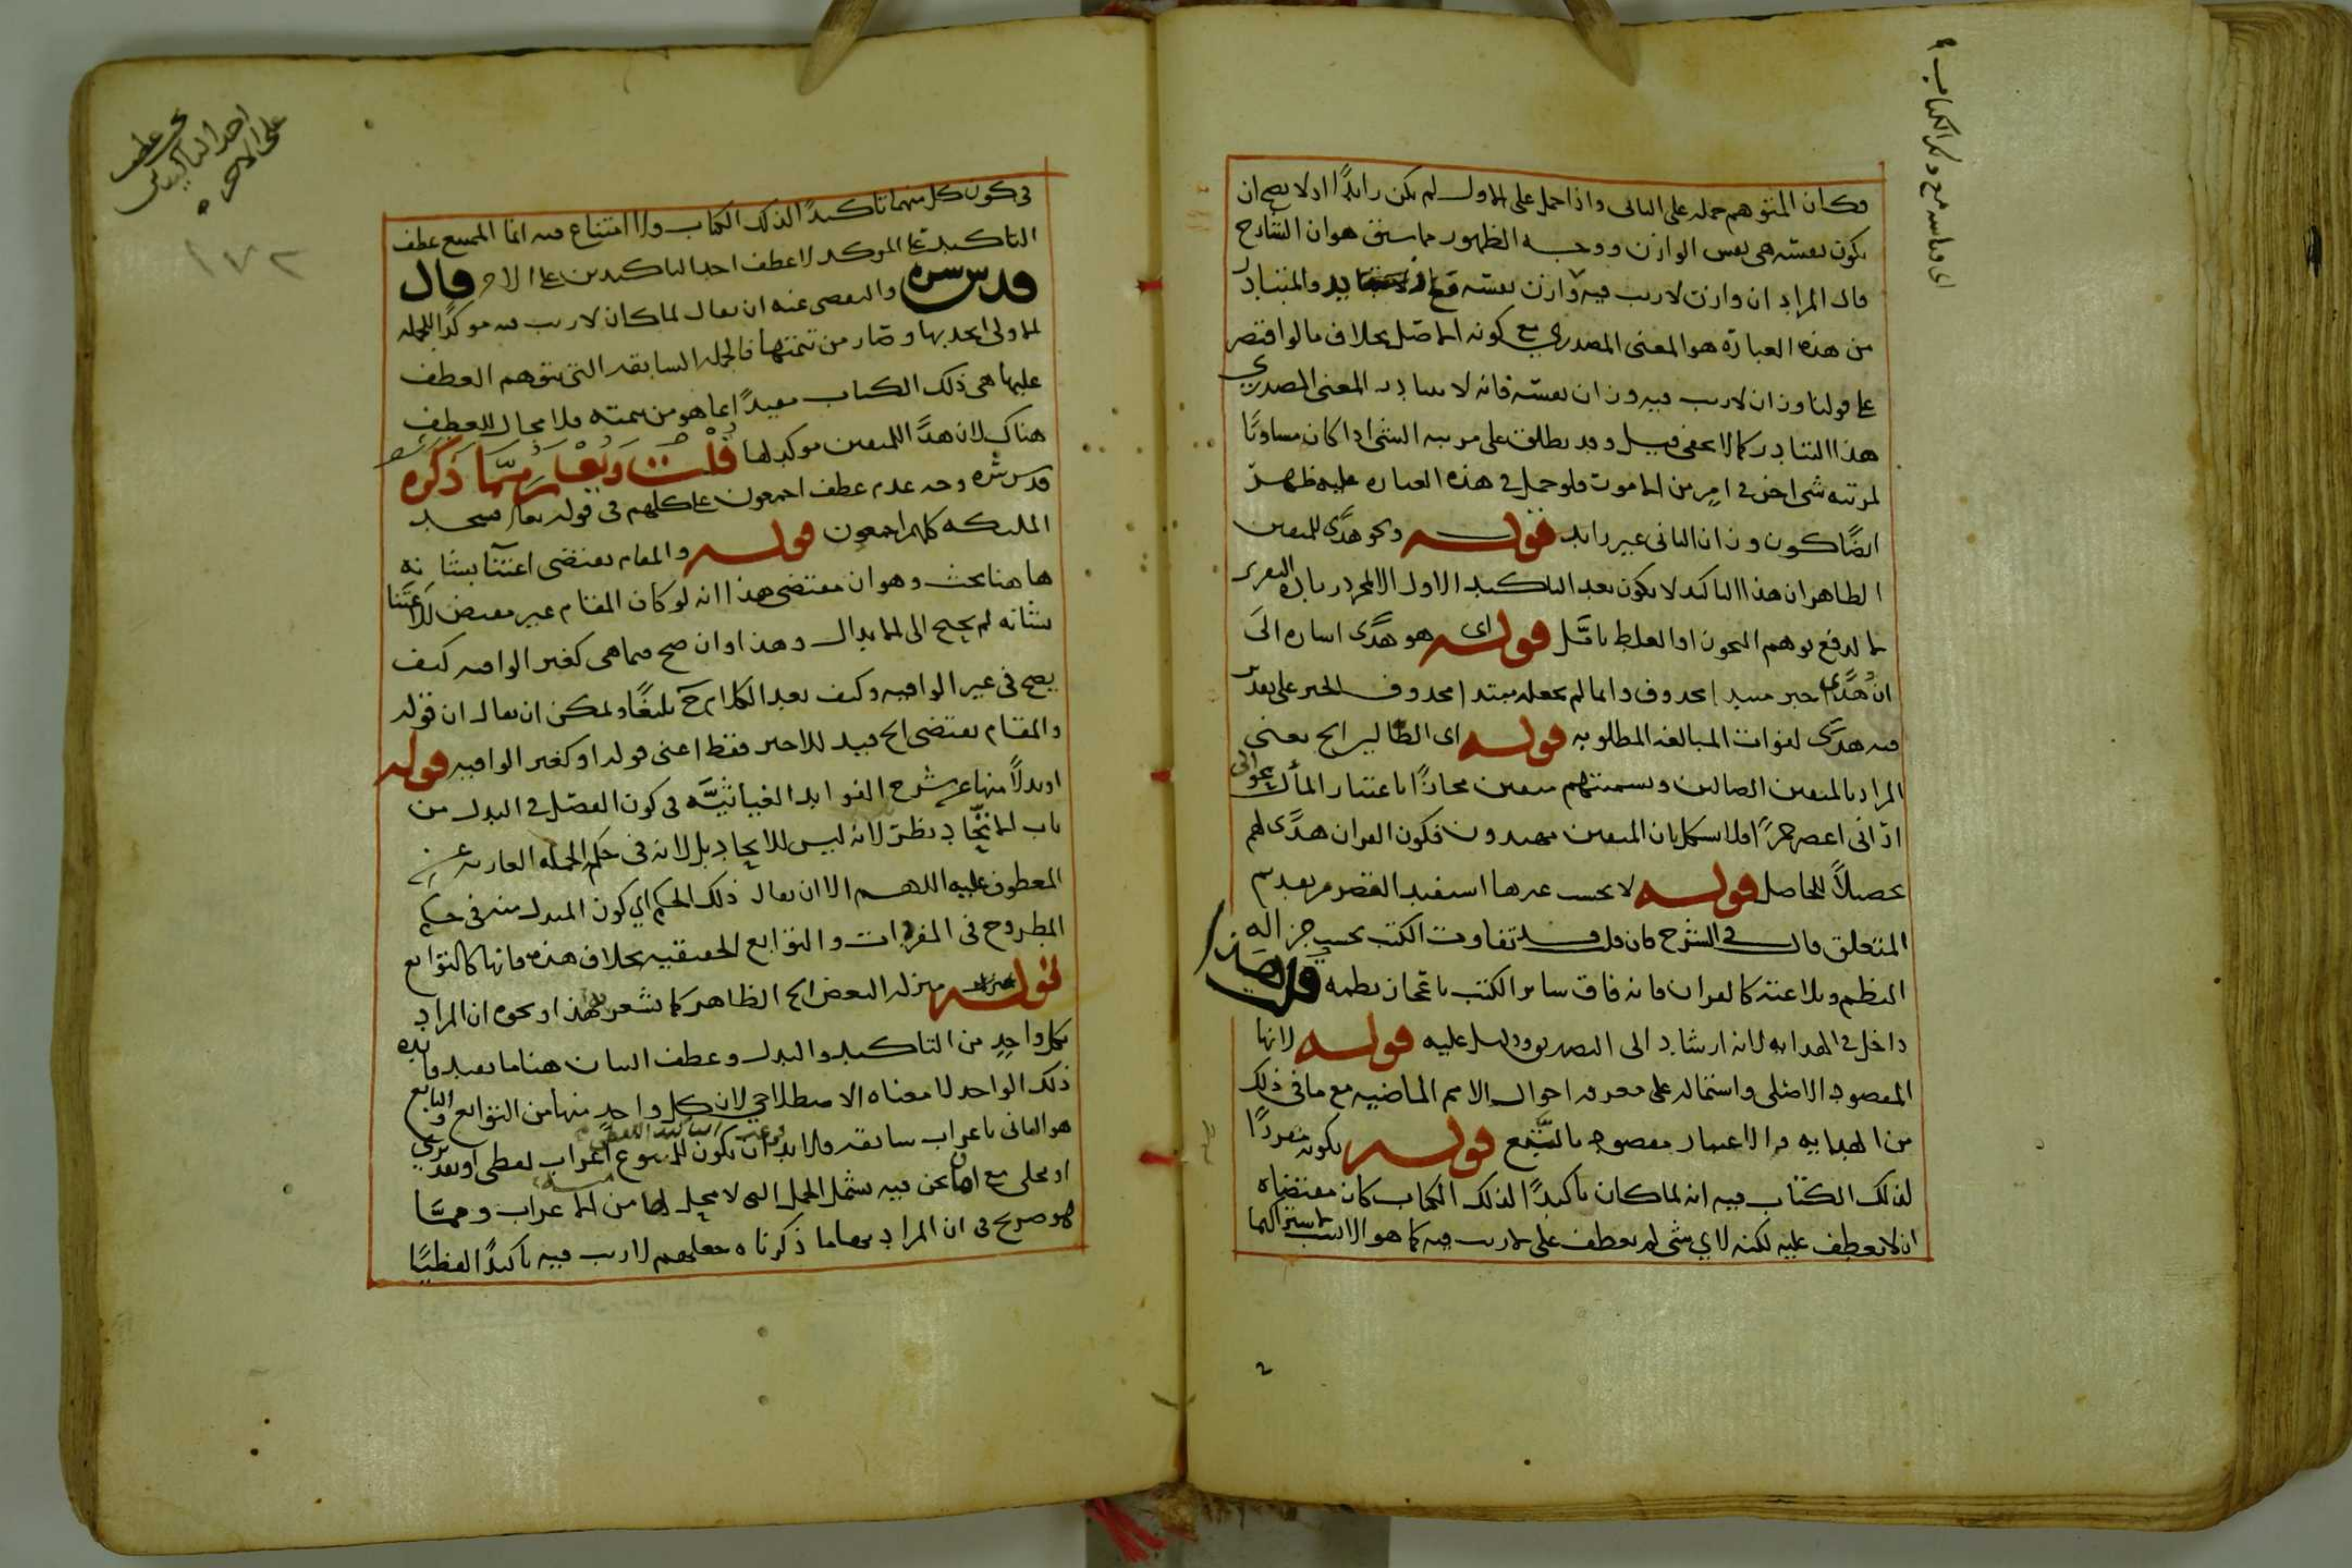 وكان المتوهم حمله على الثاني واذا حمل على الاول لم يكن زايدًا اذ لا يصح ان
يكون نفسه هي نفس الوازن ووجه الظهور مما سبق هو ان الشارح
قال المراد ان وازن لاريب فيه وازن نفسه والمتبادر
من هذه العبارة هو المعنى المصدري مع كونه الاصل بخلاف ما لو اقتصر
على قولنا وزان لاريب فيه وزان نفسه فانه لا يتبادر المعنى المصدري
هذا التبادر كما لا يخفى وقد يطلق على مرتبه الشي اذا كان مساويًا
لمرتبه شي اخر في امر من الامور فلو حمل في هذه العباره عليه ظهر
ايضًا كون وزان الثاني غير زايد قوله ونحو هدى للمتقين
الظاهر ان هذا التاكيد لا يكون بعد التاكيد الاول الا لمجرد زيادة التقرير
لا لدفع توهم التجوز او الغلط تامل قوله اي هو هدى اشاره الى
ان هدى خبر مبتدا محذوف وانما لم يجعله مبتدا محذوف الخبر على تقدير
فيه هدى لفوات المبالغه المطلوبه قوله اي الضالين الخ يعني
المراد بالمتقين الضالين وتسميتهم متقين مجازًا باعتبار المآل نحو اني
اراني اعصر خمرًا فلا اشكال بان المتقين مهتدون فكون القران هدى لهم
تحصيلًا للحاصل قوله لا بحسب غيرها استفيد القصر من تقديم
المتعلق قال في الشرح فان قلت قد تتفاوت الكتب بحسب جزاله
النظم وبلاغته كالقران فانه فاق ساير الكتب باعجاز نظمه قلت هذا
داخل في الهدايه لانه ارشاد الى التصديق ودليل عليه قوله لانها
المقصود الاصلي واشتماله على معرفه احوال الامم الماضيه مع ما في ذلك
من الهدايه والاعتبار مقصود بالتبع قوله بكونه مقررًا
لذلك الكتاب فيه انه لما كان تاكيدًا لذلك الكتاب كان مقتضاه
ان لا يعطف عليه لكنه لاي شي لم يعطف على لاريب فيه كما هو الانسب لاشتراكهما
في كون كل منهما تاكيدًا لذلك الكتاب ولا امتناع فيه انما الممتنع عطف
التاكيد على الموكد لا عطف احد التاكيدين على الاخر قال
قدس سره والتفصى عنه ان يقال لما كان لاريب فيه موكدًا للجمله
الاولى اتحد بها وصار من تتمتها فالجمله السابقه التي يتوهم العطف
عليها هي ذلك الكتاب مقيدًا بما هو من تتمته فلا مجال للعطف
هناك لان هدى للمتقين موكد لها قلت ويعلم مما ذكره
قدس سره وجه عدم عطف اجمعون على كلهم في قوله تعالى فسجد
الملئكه كلهم اجمعون قوله والمقام يقتضي اعتناء بشانه
هاهنا بحث وهو ان مقتضى هذا انه لو كان المقام غير مقتض للاعتناء
بشانه لم يحتج الى الابدال وهذا وان صح فيما هي كغير الوافيه كيف
يصح في غير الوافيه وكيف يعد الكلام ح بليغًا ويمكن ان يقال ان قوله
والمقام يقتضي الخ قيد للاخير فقط اعني قوله او كغير الوافيه قوله
او بدلًا منها في شرح الفوايد الغياثيه في كون الفصل في البدل من
باب الاتحاد نظر لانه ليس للاتحاد بل لانه في حكم الجمله العاريه عن
المعطوف عليه اللهم الا ان يقال ذلك الحكم اي كون المبدل منه في حكم
المطروح في المفردات والتوابع الحقيقيه بخلاف هذه فانها كالتوابع
قوله منزله البعض الخ الظاهر كما يشعر به هذا ونحوه ان المراد
بكل واحد من التاكيد والبدل وعطف البيان هنا ما يفيد فائده
ذلك الواحد لا معناه الاصطلاحي لان كل واحد منها من التوابع والتابع
هو الثاني باعراب سابقه ولا بد ان يكون للمتبوع اعراب لفظي او تقديري
او محلي مع ان ما نحن فيه يشمل الجمل التي لا محل لها من الاعراب ومما
هو صريح في ان المراد بها ما ذكرناه جعلهم لاريب فيه تاكيدًا لفظيًا
عطف
احد التاكيدين
على الاخر
١٧٢